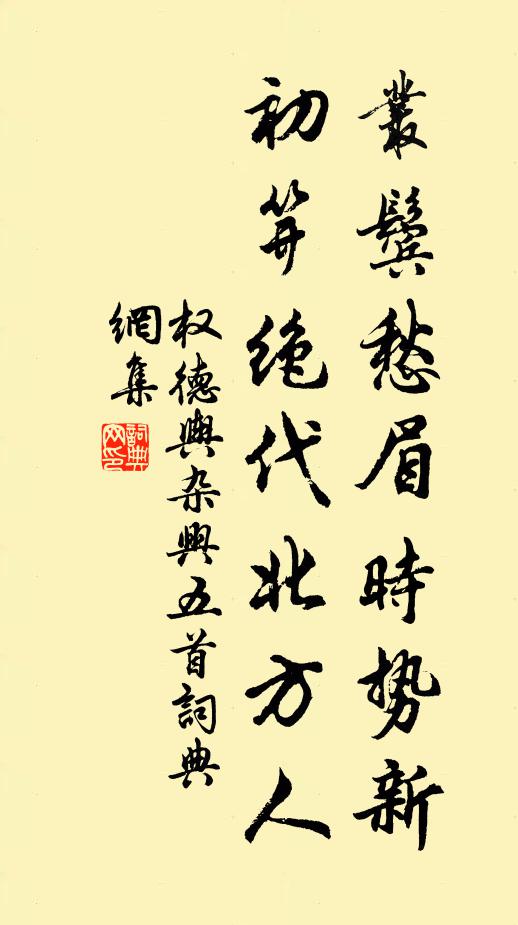 叢鬓愁眉時势新
初笄绝代北方人
权德輿杂興五首詞典
網集
詞典
网印